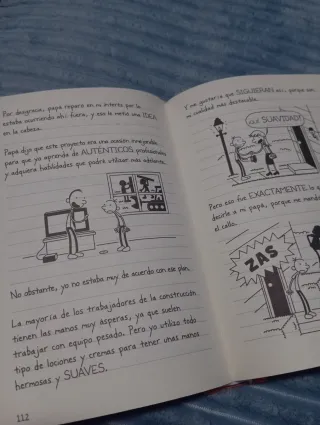 Por desgracia, papá reparó en mi interés por lo
estaba ocurriendo ahí fuera, y eso le metió una IDEA
en la cabeza.
Papá dijo que este proyecto era una ocasión inmejorable
para que yo aprenda de AUTÉNTICOS profesionales
y adquiera habilidades que podré utilizar más adelante.
No obstante, yo no estaba muy de acuerdo con ese plan.
La mayoría de los trabajadores de la construcción
tienen las manos muy ásperas, ya que suelen
trabajar con equipo pesado. Pero yo utilizo todo
tipo de lociones y cremas para tener unas manos
hermosas y SUAVES.
112
Y me gustaría que SIGUIERAN así, porque
mi cualidad más destacable.
¡QUÉ SUAVIDAD!
Pero eso fue EXACTAMENTE lo
decirle a mi papá, porque me mandó
el callo.
ZAS